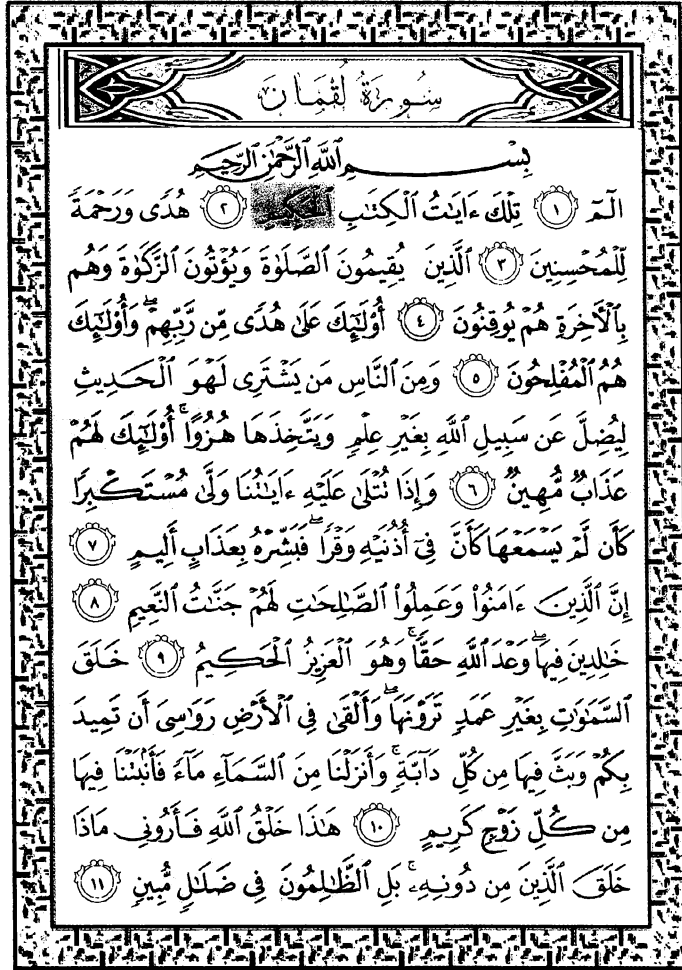 سُورَةُ لُقْمَان
بِسْمِ ٱللَّهِ ٱلرَّحْمَٰنِ ٱلرَّحِيمِ
الٓمٓ ١ تِلْكَ ءَايَٰتُ ٱلْكِتَٰبِ ٱلْحَكِيمِ ٢ هُدًى وَرَحْمَةً
لِّلْمُحْسِنِينَ ٣ ٱلَّذِينَ يُقِيمُونَ ٱلصَّلَوٰةَ وَيُؤْتُونَ ٱلزَّكَوٰةَ وَهُم
بِٱلْأَخِرَةِ هُمْ يُوقِنُونَ ٤ أُوْلَٰٓئِكَ عَلَىٰ هُدًى مِّن رَّبِّهِمْۖ وَأُوْلَٰٓئِكَ
هُمُ ٱلْمُفْلِحُونَ ٥ وَمِنَ ٱلنَّاسِ مَن يَشْتَرِى لَهْوَ ٱلْحَدِيثِ
لِيُضِلَّ عَن سَبِيلِ ٱللَّهِ بِغَيْرِ عِلْمٍ وَيَتَّخِذَهَا هُزُوًاۚ أُوْلَٰٓئِكَ لَهُمْ
عَذَابٌ مُّهِينٌ ٦ وَإِذَا تُتْلَىٰ عَلَيْهِ ءَايَٰتُنَا وَلَّىٰ مُسْتَكْبِرًا
كَأَن لَّمْ يَسْمَعْهَا كَأَنَّ فِىٓ أُذُنَيْهِ وَقْرًاۖ فَبَشِّرْهُ بِعَذَابٍ أَلِيمٍ ٧
إِنَّ ٱلَّذِينَ ءَامَنُوا۟ وَعَمِلُوا۟ ٱلصَّٰلِحَٰتِ لَهُمْ جَنَّٰتُ ٱلنَّعِيمِ ٨
خَٰلِدِينَ فِيهَاۖ وَعْدَ ٱللَّهِ حَقًّاۚ وَهُوَ ٱلْعَزِيزُ ٱلْحَكِيمُ ٩ خَلَقَ
ٱلسَّمَٰوَٰتِ بِغَيْرِ عَمَدٍ تَرَوْنَهَاۖ وَأَلْقَىٰ فِى ٱلْأَرْضِ رَوَٰسِىَ أَن تَمِيدَ
بِكُمْ وَبَثَّ فِيهَا مِن كُلِّ دَآبَّةٍۚ وَأَنزَلْنَا مِنَ ٱلسَّمَآءِ مَآءً فَأَنۢبَتْنَا فِيهَا
مِن كُلِّ زَوْجٍ كَرِيمٍ ١٠ هَٰذَا خَلْقُ ٱللَّهِ فَأَرُونِى مَاذَا
خَلَقَ ٱلَّذِينَ مِن دُونِهِۦۚ بَلِ ٱلظَّٰلِمُونَ فِى ضَلَٰلٍ مُّبِينٍ ١١